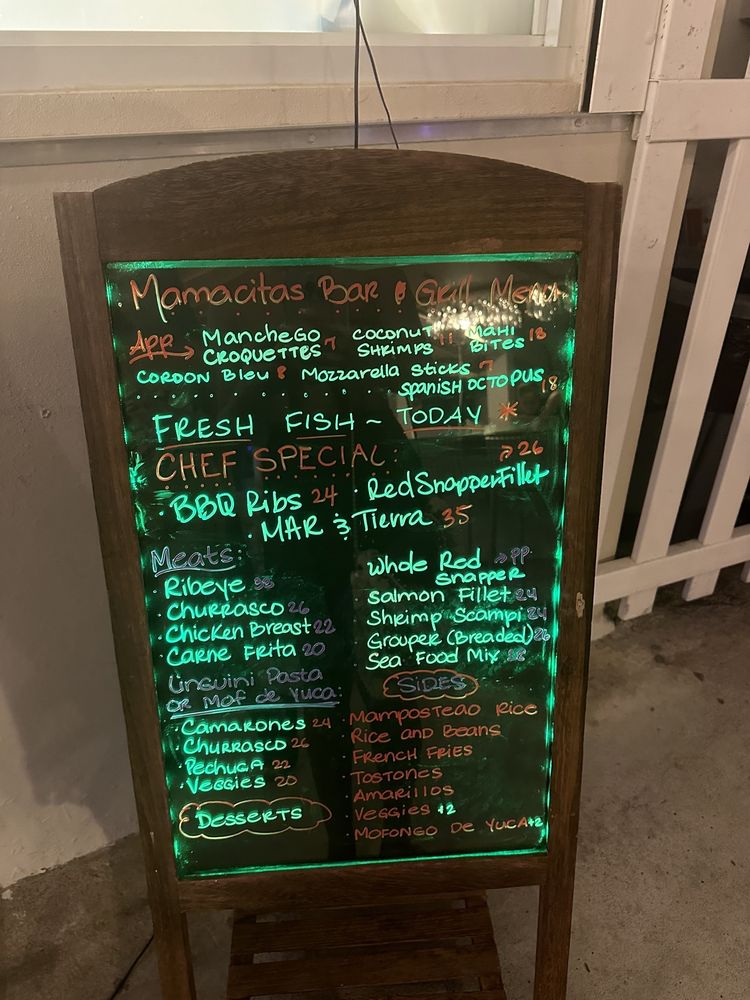 Mamacitas Bar & Grill Menu
App → Manchego Croquettes 7
Coconut Shrimps 11
Mahi Bites 18
Cordon Bleu 8 Mozzarella Sticks 7
Spanish Octopus 18
Fresh Fish ~ Today *
Chef Special:
· BBQ Ribs 24
· Red Snapper Fillet → 26
· Mar & Tierra 35
Meats:
· Ribeye
· Churrasco 26
· Chicken Breast 22
· Carne Frita 20
Whole Red Snapper → PP.
Salmon Fillet 24
Shrimp Scampi 24
Grouper (Breaded) 26
Sea Food Mix
Linguini Pasta
or Mof de Yuca:
· Camarones 24
· Churrasco 26
· Pechuga 22
· Veggies 20
Desserts
Sides
· Mamposteao Rice
· Rice and Beans
· French Fries
· Tostones
· Amarillos
· Veggies +2
· Mofongo de Yuca +2